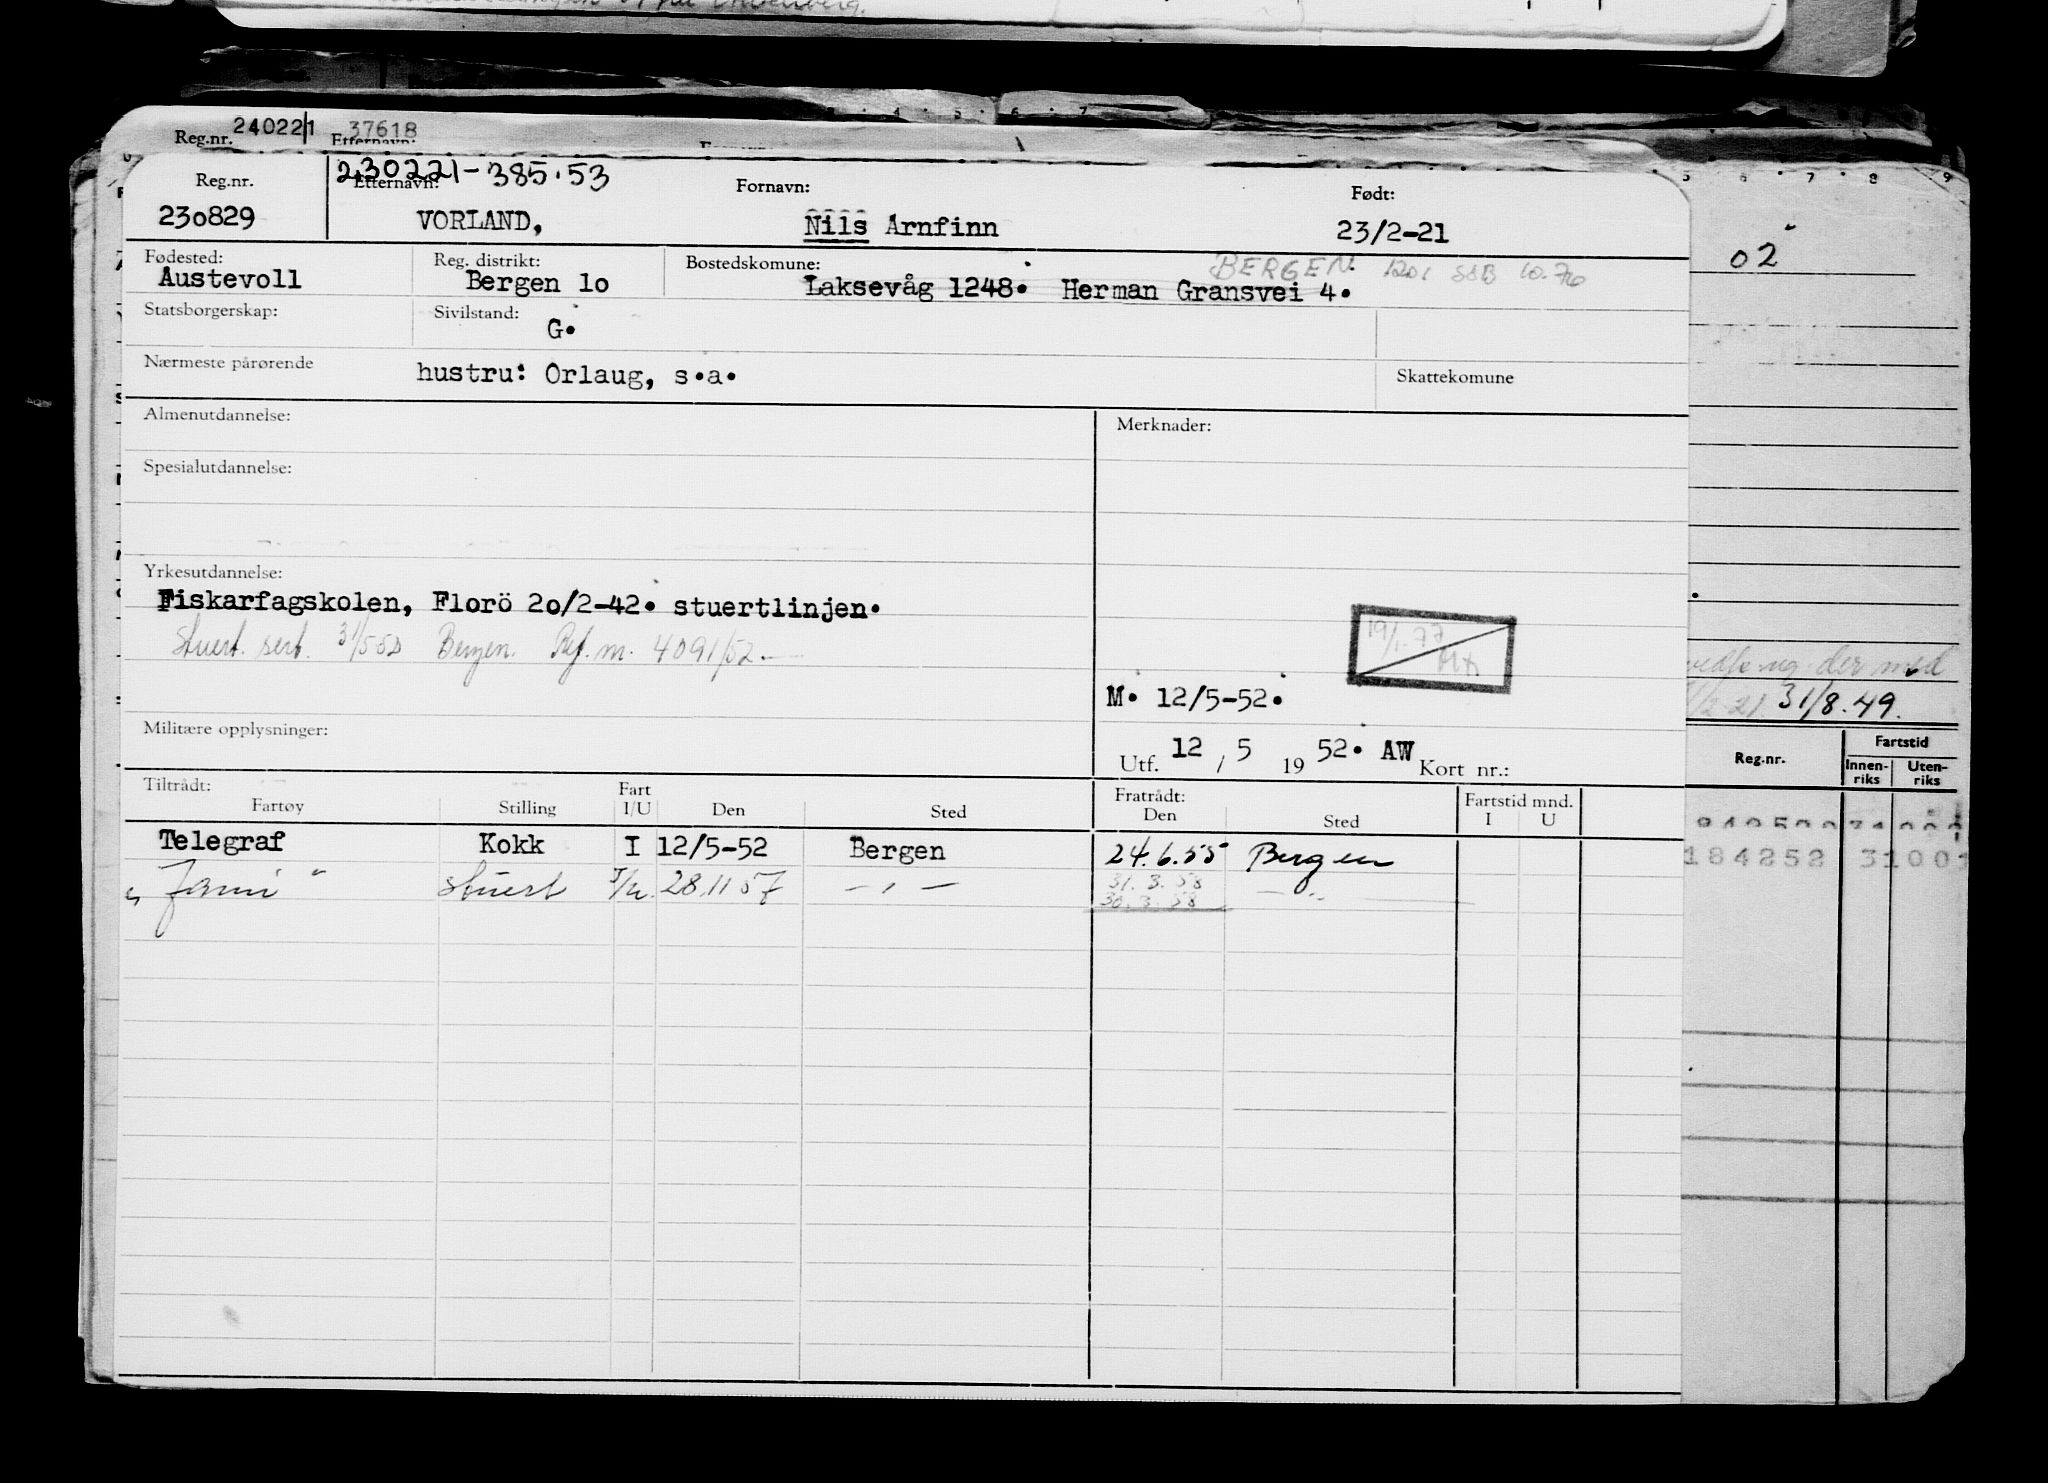 Reg.nr. 240221 37618
Etternavn:
230221-385.53
Reg.nr. Etternavn: Fornavn: Født:
230829 VORLAND, Nils Arnfinn 23/2-21
Fødested: Reg. distrikt: Bostedskomune: BERGEN 1201 SSB 10.76
Austevoll Bergen 1o Laksevåg 1248. Herman Gransvei 4.
Statsborgerskap: Sivilstand: G.
Nærmeste pårørende hustru: Orlaug, s.a. Skattekomune
Almenutdannelse: Merknader:
Spesialutdannelse:
Yrkesutdannelse:
Fiskarfagskolen, Florö 2o/2-42. stuertlinjen.
Stuert. sert. 31/5-52 Bergen. Ref. nr. 4091/52.
19/1.77
M. 12/5-52.
Militære opplysninger:
Utf. 12 / 5 19 52. AW Kort nr.:
Tiltrådt: Fratrådt:
Fartøy Stilling Fart I/U Den Sted Den Sted Fartstid mnd. I U
Telegraf Kokk I 12/5-52 Bergen 24.6.55 Bergen
" Jarni " stuert I/U. 28.11 57 — " — 31. 3. 58 — " —
30. 3. 58
02
der med
31/8.49.
Reg.nr. Fartstid
Innen-riks Uten-riks
184252 31001